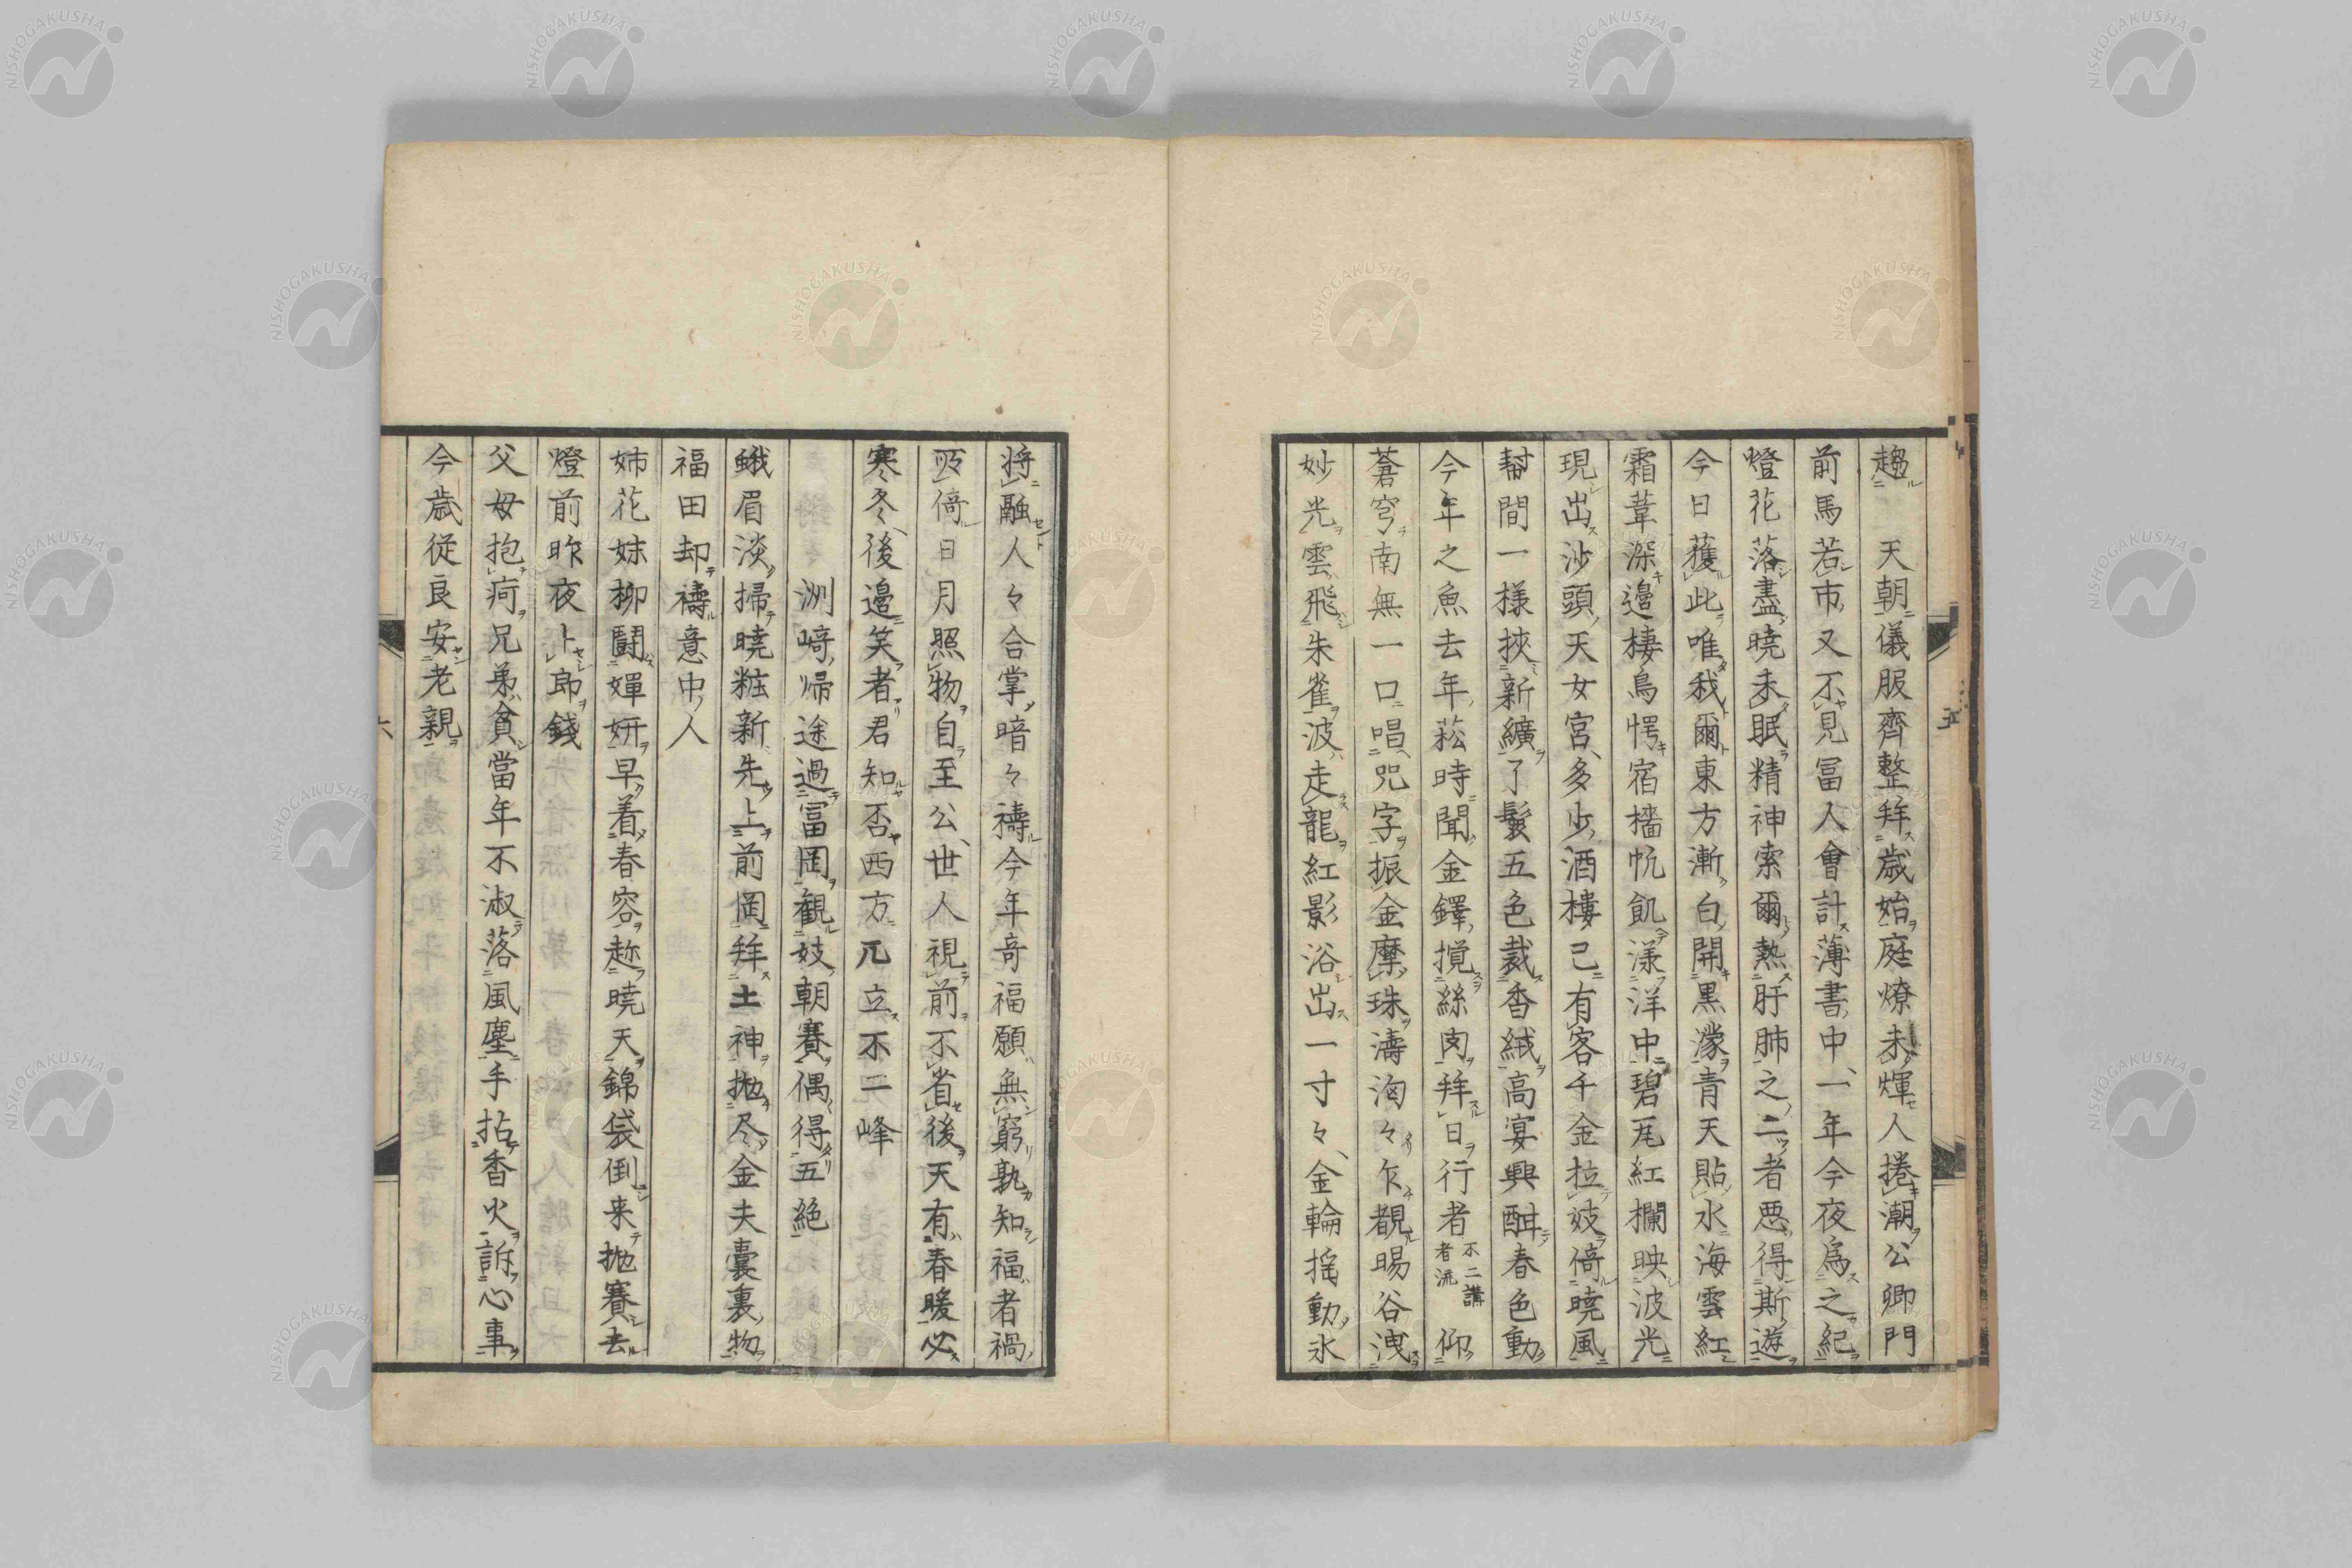 趨　天朝儀服齊整拜歳始庭燎未煇人捲潮公卿門
前馬若市又不見冨人會計薄書中一年今夜爲之紀
燈花落盡曉未眠精神索爾熱肝肺之二者惡得斯遊
今日獲此唯我爾東方漸白開黒濛青天貼水海雲紅
霜葦深邉棲鳥愕宿檣帆飢漾洋中碧瓦紅欄映波光
現出沙頭天女宮多少酒樓已有客千金拉妓倚曉風
幇間一様挾新纊了鬟五色裁香絨高宴興酣春色動
今年之魚去年菘時聞金鐸攪絲肉拜日行者不二講者流仰
蒼穹南無一口唱咒字振金摩珠濤洶々乍覩暘谷洩
妙光雲飛朱雀波走龍紅影浴出一寸々金輪揺動氷
将融人々合掌暗々禱今年奇福願無窮孰知福者禍
所倚日月照物自至公世人視前不省後天有春暖必
寒冬後邉笑者君知否西方兀立不二峰
洲﨑歸途過冨岡觀妓朝賽偶得五絶
蛾眉淡掃曉粧新先上前岡拜土神抛尽金夫嚢裏物
福田却禱意中人
姉花妹柳鬪嬋妍早着春容趂曉天錦袋倒来抛賽去
燈前昨夜卜郎錢
父母抱痾兄弟貧當年不淑落風塵手拈香火訴心事
今歳從良安老親
五
六
NISHOGAKUSHA